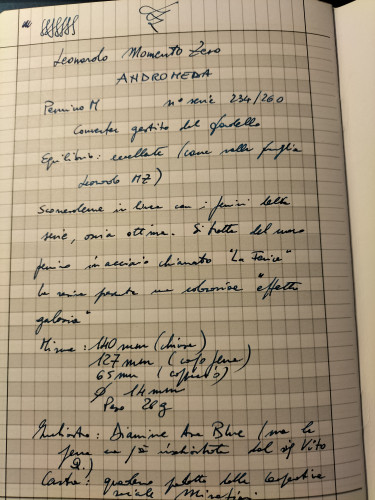 Leonardo Momento Zero
ANDROMEDA
Pennino M n° serie 234/260
Converter gestito dal fondello
Equilibrio: eccellente (come nella famiglia
Leonardo MZ)
Scorrevolezza in linea con i pennini della
serie, ossia ottima. Si tratta del nuovo
pennino in acciaio chiamato "La Fenice"
la resina presenta una colorazione "effetto
galassia"
Misure: 140 mm (chiusa)
127 mm (corpo penna)
65 mm (cappuccio)
Ø 14 mm
Peso 26 g
Inchiostro: Diamine Blue (ma la
penna era già inchiostrata dal sig Vito
Carta: quaderno della cooperativa
sociale